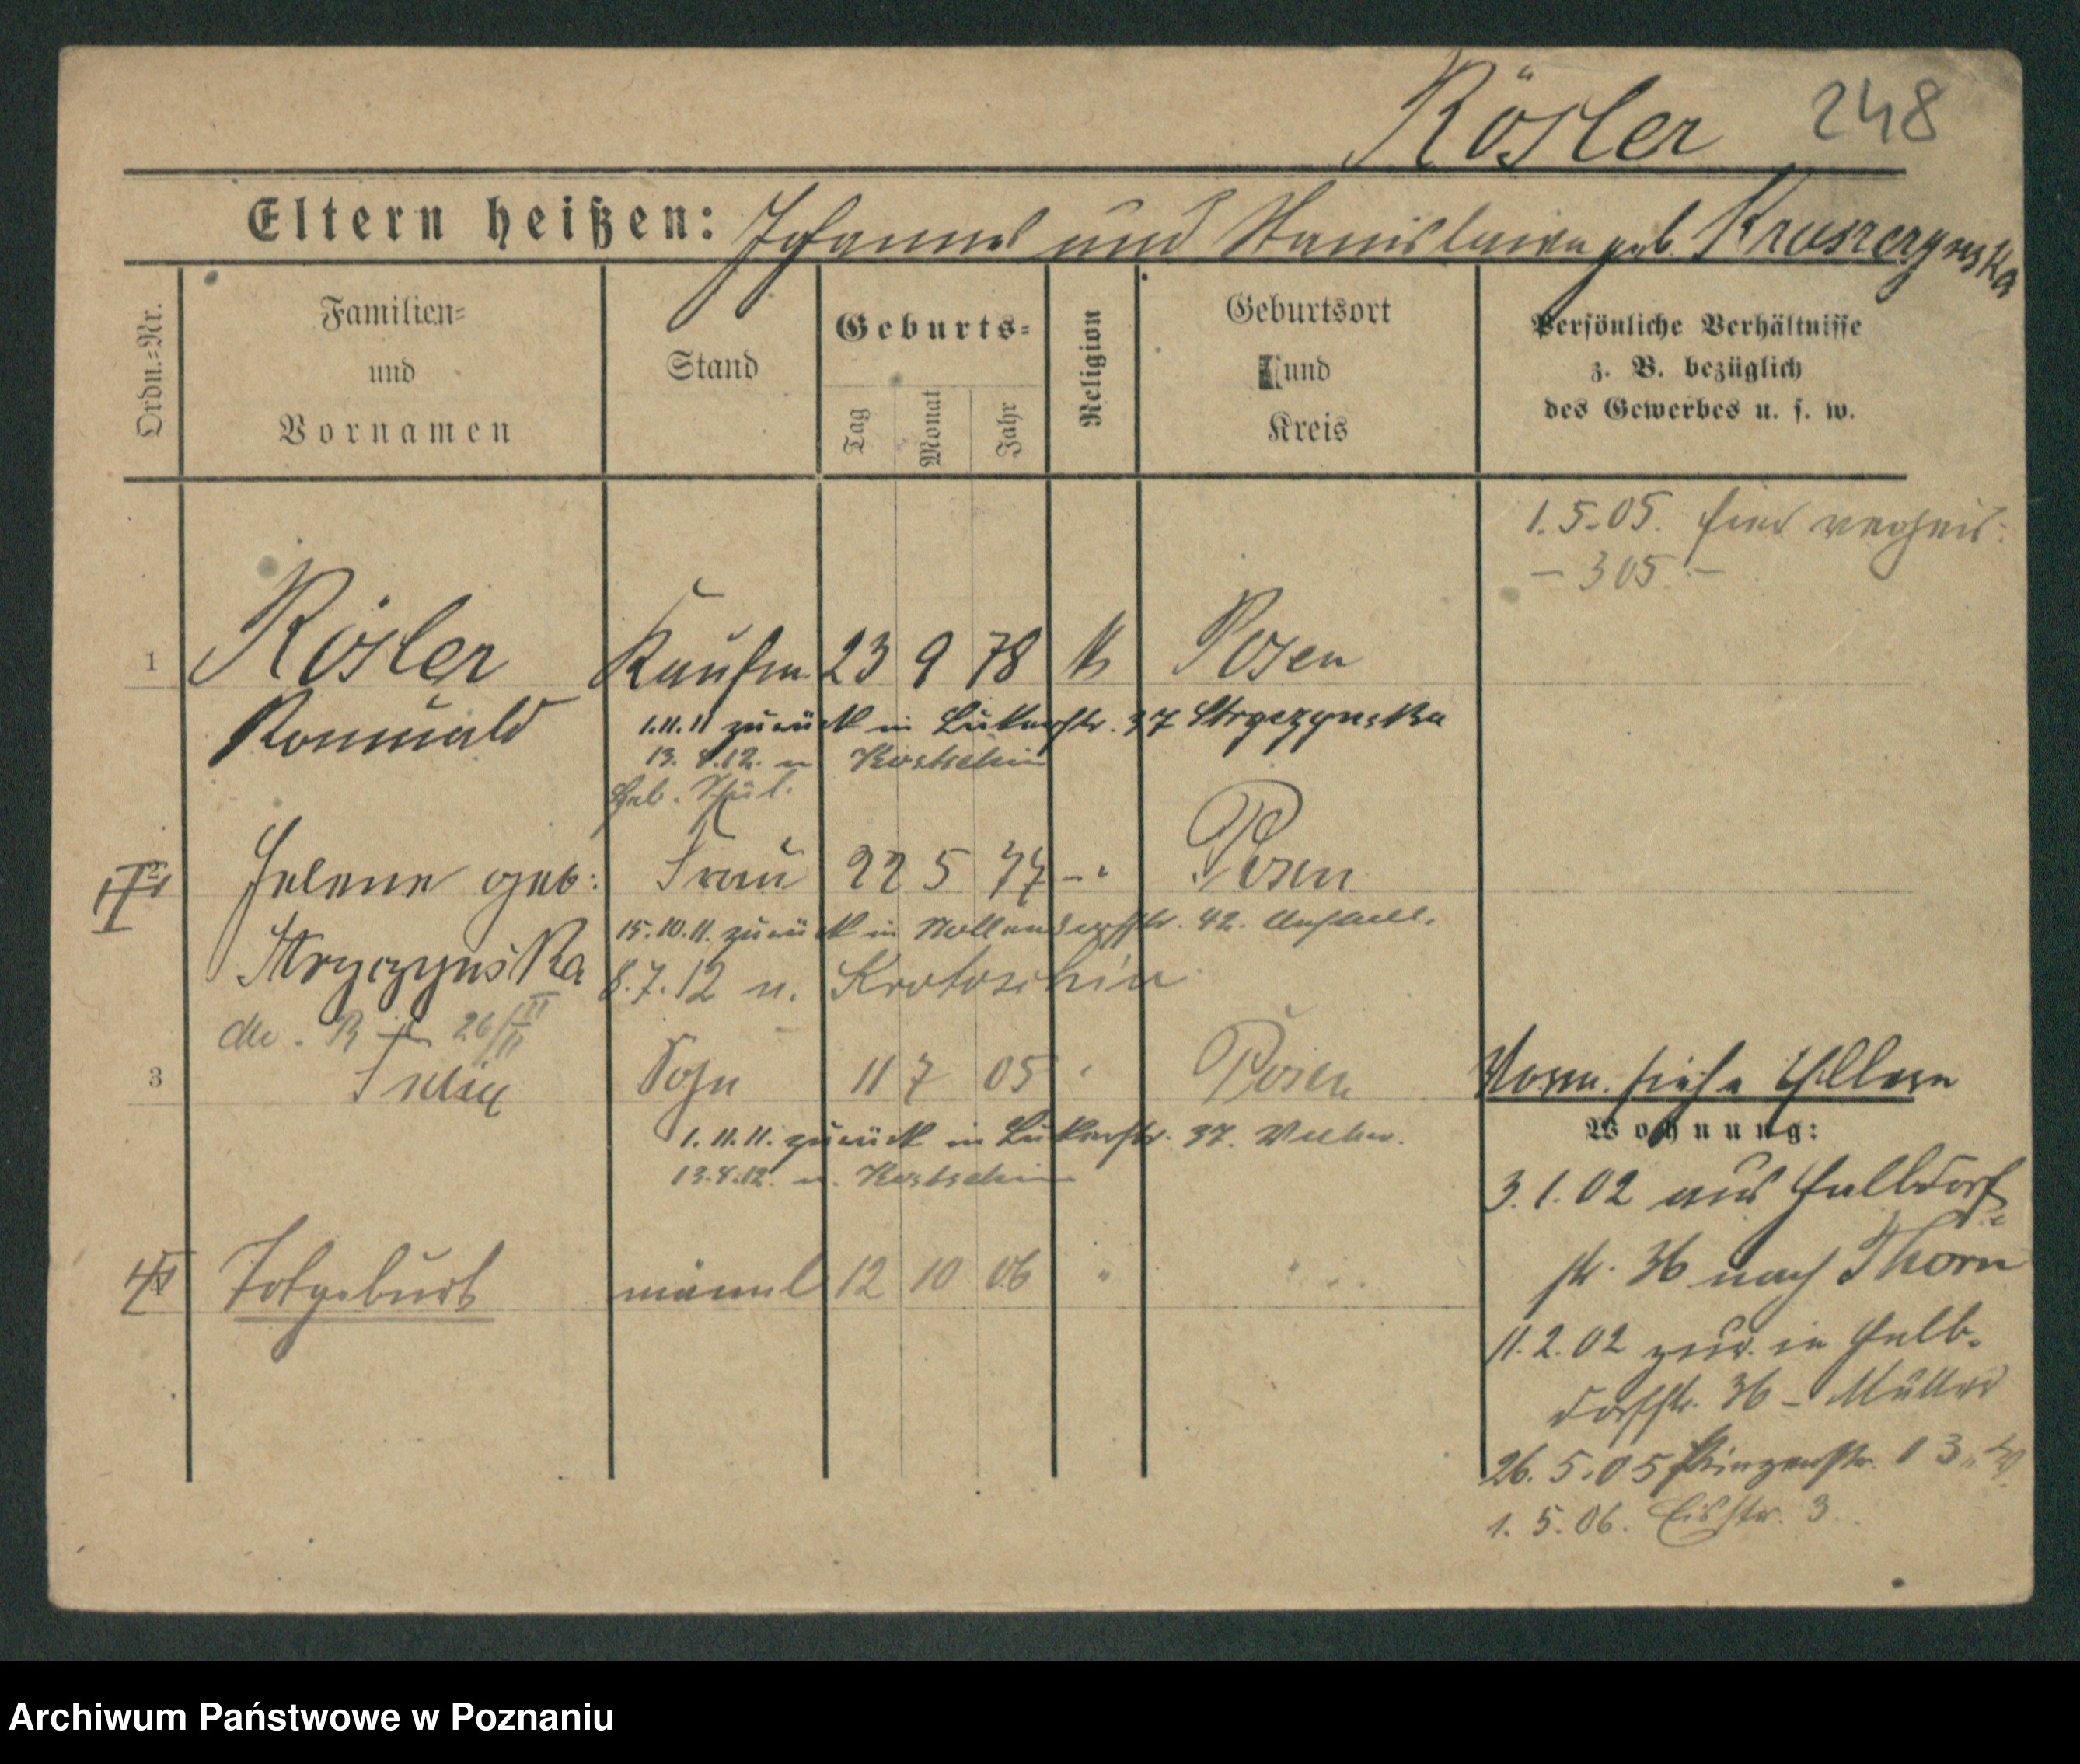 Rösler 248
Eltern heißen: Johannes und Stanislawa geb. Kruszczynska
Ordn.=Nr.
Familien=
und
Vornamen
Stand
Geburts=
Tag
Monat
Jahr
Religion
Geburtsort
und
Kreis
Persönliche Verhältnisse
z. B. bezüglich
des Gewerbes u. s. w.
1.5.05.
- 305 -
1 Rösler Kaufm. 23 9 78 k Posen
Romuald
1.11.11 zurück in Bukerstr. 37 Stryczynska
13. 4.12. n Kostschin
2 Helene geb: Frau 22 5 77 - " Posen
Stryczynska
15.10.11. zurück in Nollendorfstr. 42.
8.7.12 n. Krotoschin
26/III 11
3 Felix Sohn 11 7 05 " Posen
1.11.11. zurück in Bukerstr. 37.
13.4.12. n. Kostschin
4 Totgeburt männl 12 10 06 " "
Vorm. siehe Eltern
Wohnung:
3.1.02 aus Halbdorf
str. 36 nach Thorn
11.2.02 zur. in Halb-
dorfstr. 36 - Mutter
26.5.05 Prinzenstr. 13
1.5.06. Eisstr. 3
Archiwum Państwowe w Poznaniu